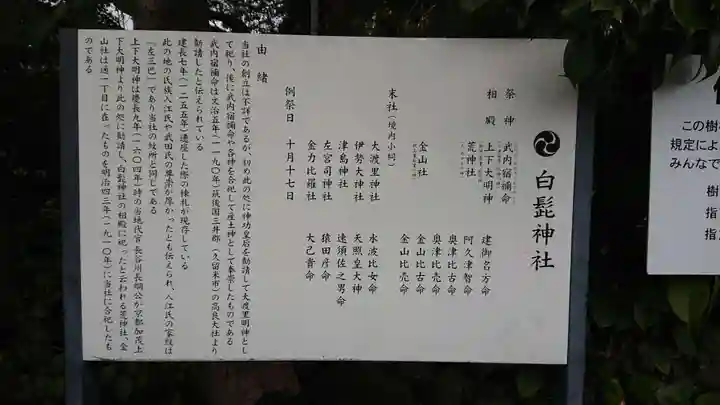 白髭神社
祭神 武内宿禰命
相殿 上下大明神 建御名方命
荒神社 阿久津智命
奥津比古命
奥津比売命
金山社 金山比古命
金山比売命
末社(境内小祠)
大渡里神社 水波比女命
伊勢大神社 天照皇大神
津島神社 速須佐之男命
左宮司神社 猿田彦命
金力比羅社 大己貴命
例祭日 十月十七日
由緒
当社の創立は不詳であるが、初め此の処に神功皇后を勧請して大渡里明神とし
て祀り、後に武内宿禰命や各神を合祀して産土神として奉崇したものである
武内宿禰命は文治五年(一一九〇年)筑後国三井郡(久留米市)の高良大社より
勧請したと伝えられている
建長七年(一二五五年)遷座した際の棟札が現存している
此の地の氏族入江氏や武田氏の尊崇が厚かったとも伝えられ、入江氏の家紋は
『左三巴』であり当社の紋所と同じである
上下大明神は慶長九年(一六〇四年)時の当地代官長谷川長綱公が京都加茂上
下大明神より此の処に勧請し、白髭神社の相殿に祀ったと云われる荒神社、金
山社は通一丁目に在ったものを明治四三年(一九一〇年)に当社に合祀したも
のである
この樹
規定によ
みんなで
樹
指
指